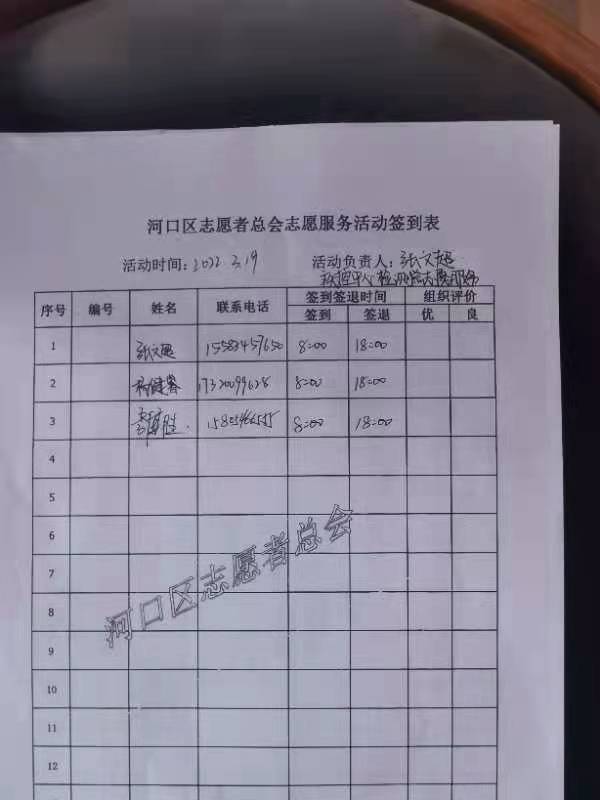 河口区志愿者总会志愿服务活动签到表
活动时间：2022.3.19 活动负责人：张文超
疾控中心检测室志愿服务
序号 编号 姓名 联系电话 签到签退时间 组织评价
签到 签退 优 良
1 张文超 15583457650 8:00 18:00
2 8:00 18:00
3 8:00 18:00
4
5
6
7
8
9
10
11
12
河口区志愿者总会